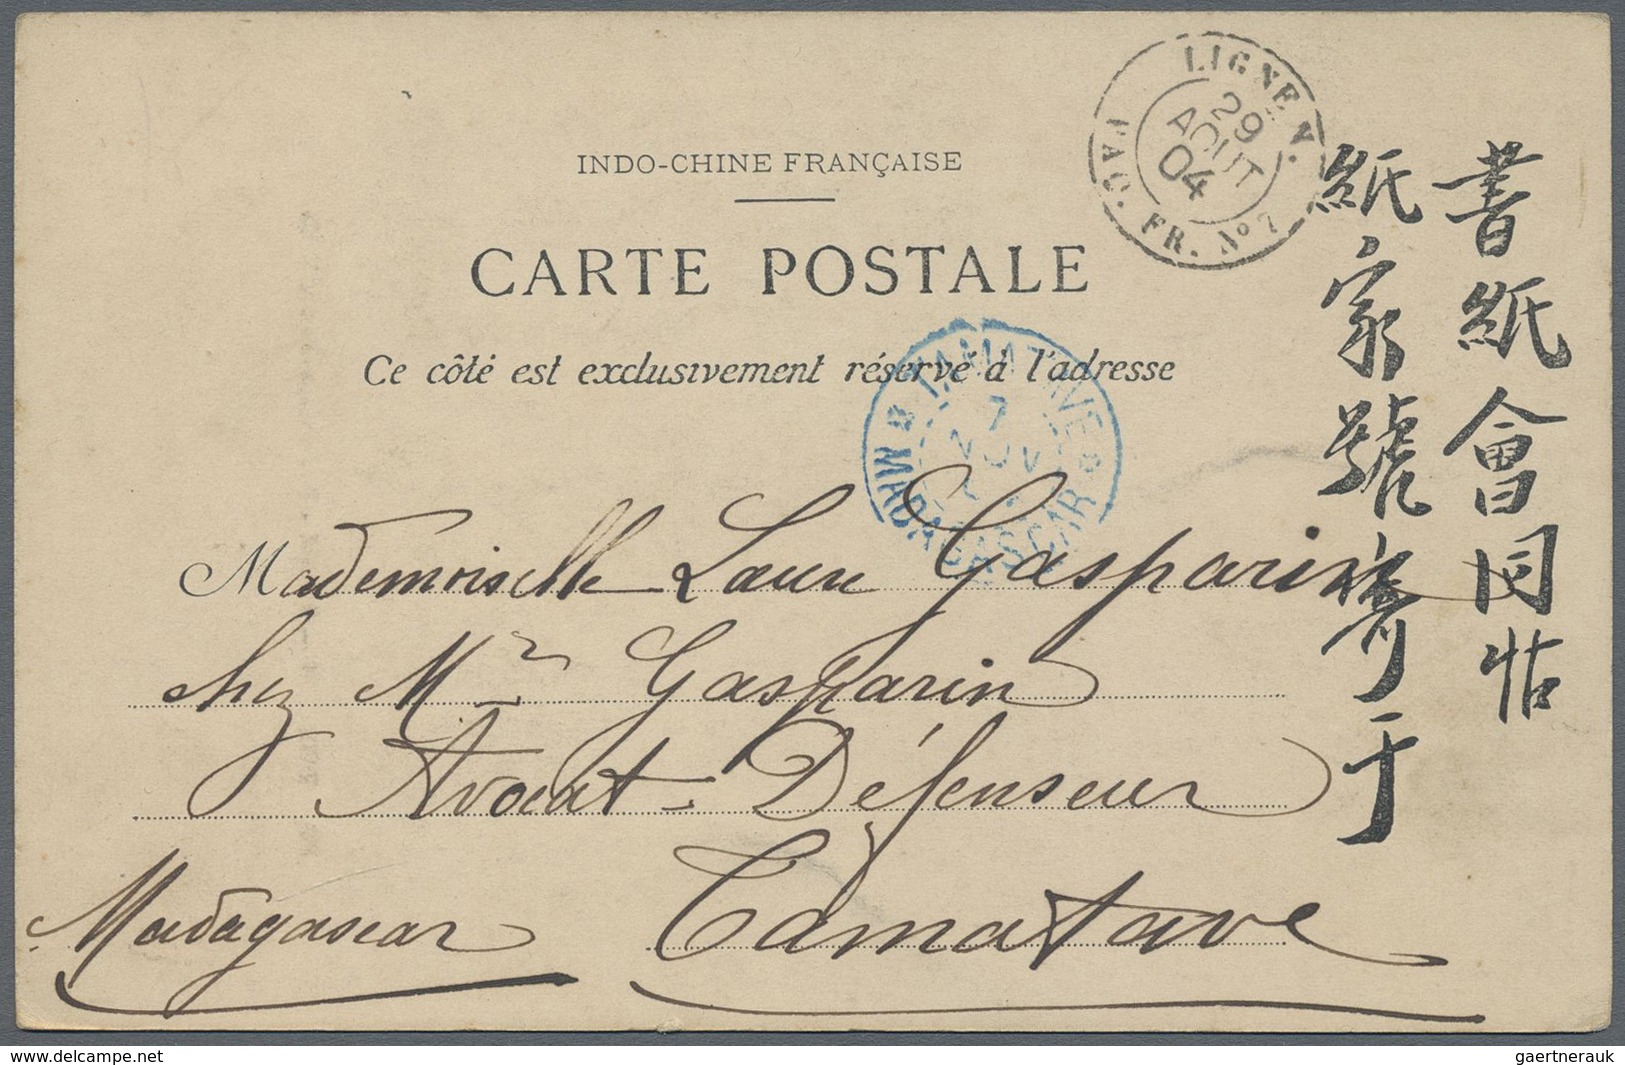 INDO-CHINE FRANÇAISE
CARTE POSTALE
Ce côté est exclusivement réservé à l'adresse
LIGNE N.
29
AOUT
04
PAQ. FR. No 7
TAMATAVE
7
NOV
MADAGASCAR
書紙會同帖
紙家號寄于
Mademoiselle Laure Gasparin
chez Mr Gasparin
Avocat-Défenseur
Tamatave
Madagascar
www.delcampe.net
gaertnerauk